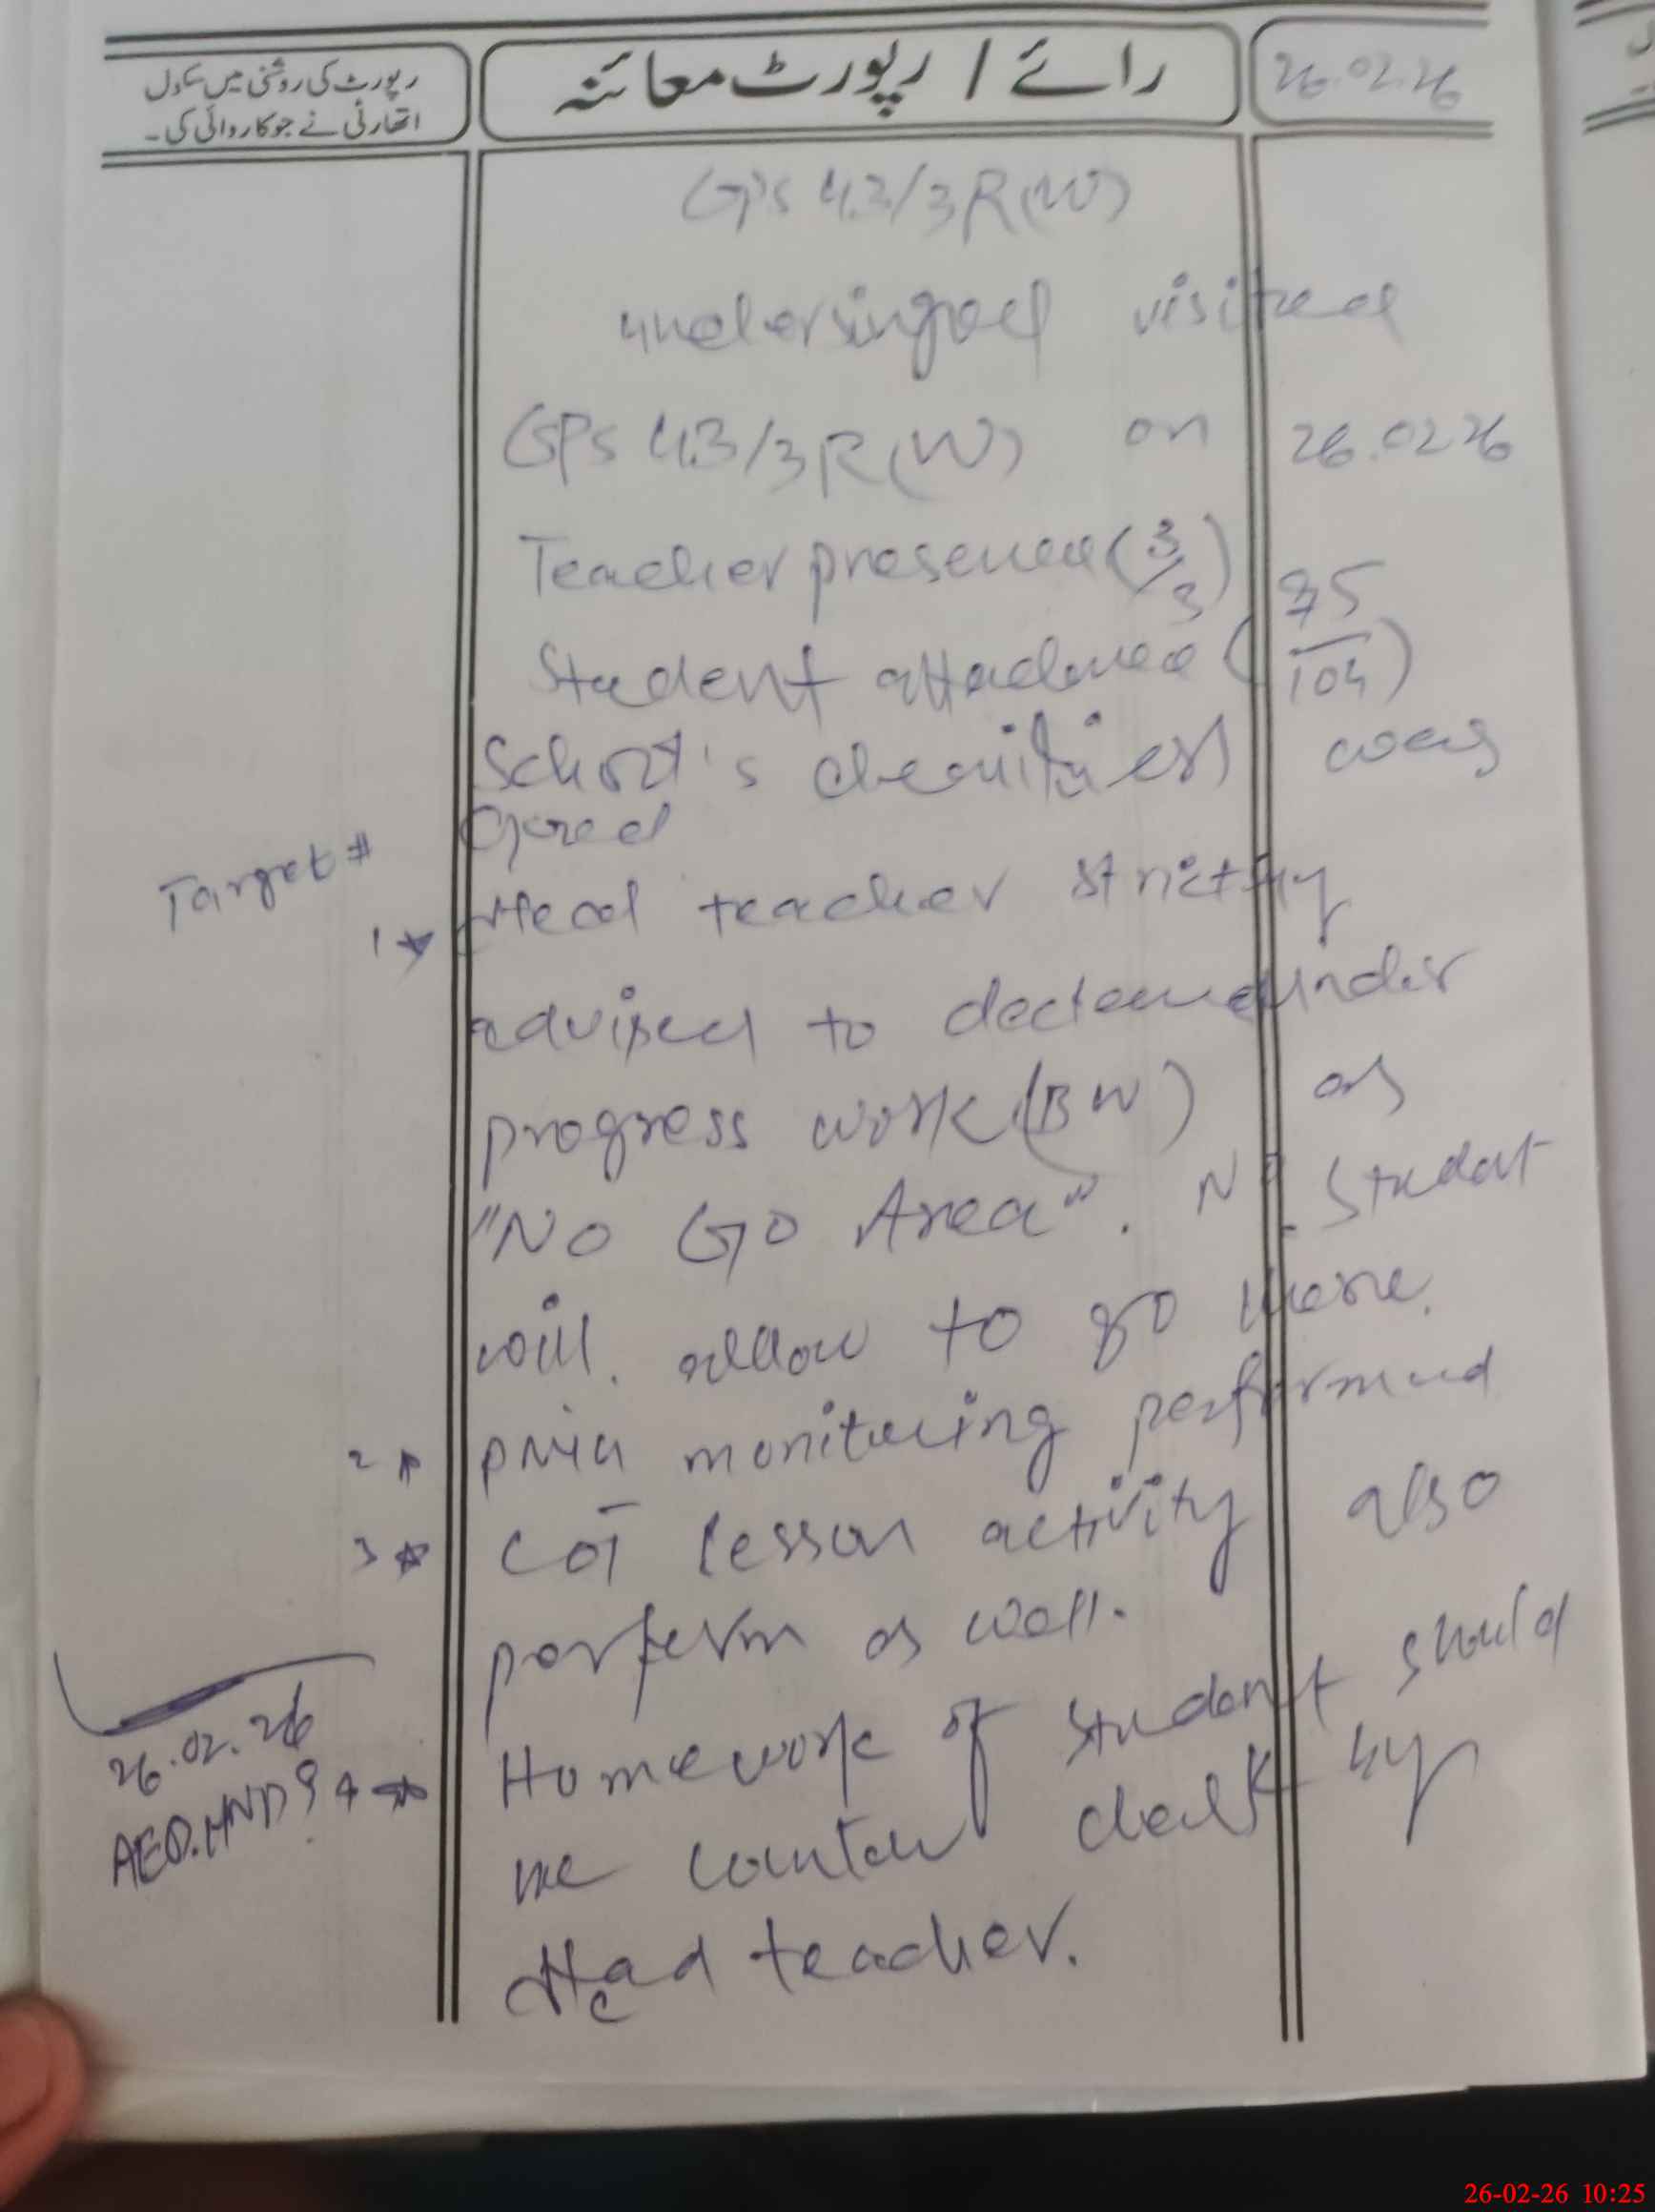 رپورٹ کی روشنی میں سکول
اتھارٹی نے جو کاروائی کی۔
رائے / رپورٹ معائنہ
26.02.26
GPS 43/3R(W)
undersingned visited
GPS 43/3R(W) on 26.02 26
Teacher presence (3/3)
Student attadence (75/104)
School's cleanliness was
Good
Target #
1 Head teacher strictly
advised to declare under
progress work (BW) as
"No Go Area". No. Student
will. allow to go there.
2 monitoring performed
3 COT lesson activity also
perform as well.
4 Homework of student should
be counter check by
Head teacher.
26.02.26
AEO.HND
26-02-26 10:25